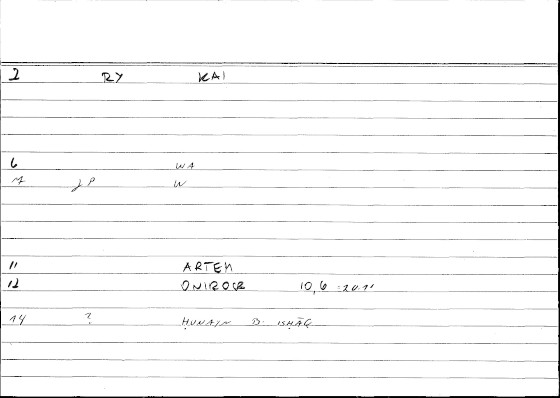 2 RY KAI
6 WA
7 JP W
11 ARTEM
12 ONIROCR 10,6 :20.11
14 ? ḤUNAYN B. ISḤĀQ